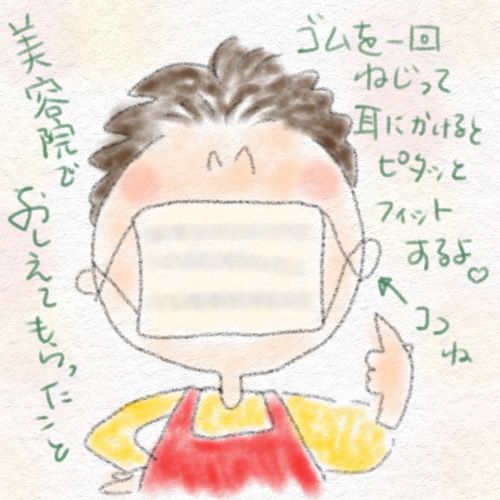 美容院で
おしえてもらったこと
ゴムを一回
ねじって
耳にかけると
ピタッと
フィット
するよ♡
ココね